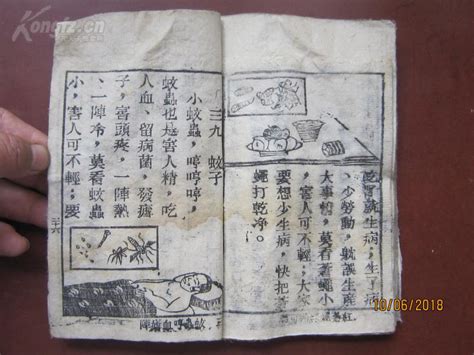 吃了就生病；生了病
、少勞動，躭誤生產
大事情，莫看蒼蠅小
，害人可不輕；大家
要想少生病，快把蒼
蠅打乾淨。
三九 蚊子
小蚊蟲，哼哼哼，
蚊蟲也是害人精，吃
人血、留病菌，發瘧
子，害頭疼，一陣熱
、一陣冷，莫看蚊蟲
小，害人可不輕；要
10/06/2018